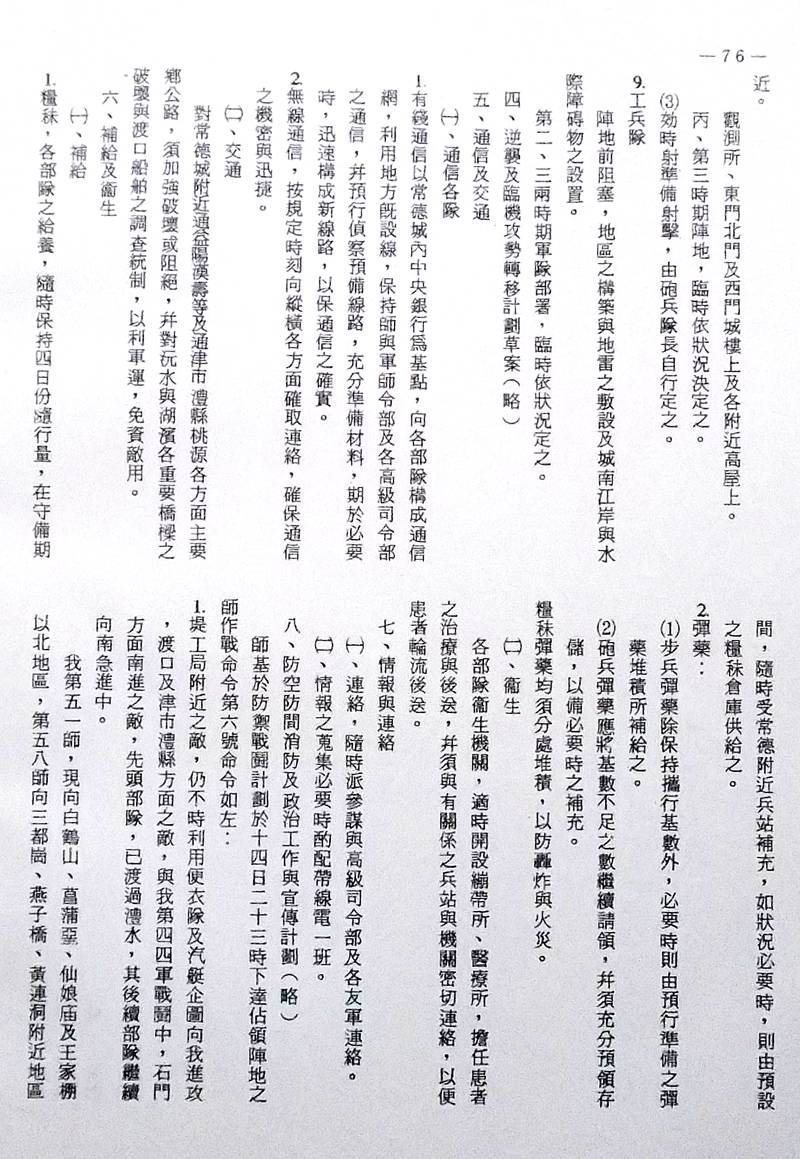 —76—
近。
觀測所、東門北門及西門城樓上及各附近高屋上。
丙、第三時期陣地，臨時依狀況決定之。
⑶効時射準備射擊，由砲兵隊長自行定之。
9.工兵隊
陣地前阻塞，地區之構築與地雷之敷設及城南江岸與水
際障碍物之設置。
第二、三兩時期軍隊部署，臨時依狀況定之。
四、逆襲及臨機攻勢轉移計劃草案（略）
五、通信及交通
㈠、通信各隊
1.有綫通信以常德城內中央銀行爲基點，向各部隊構成通信
網，利用地方旣設線，保持師與軍師令部及各高級司令部
之通信，幷預行偵察預備線路，充分準備材料，期於必要
時，迅速構成新線路，以保通信之確實。
2.無線通信，按規定時刻向縱橫各方面確取連絡，確保通信
之機密與迅捷。
㈡、交通
對常德城附近通益陽漢壽等及通津市澧縣桃源各方面主要
鄉公路，須加強破壞或阻絕，幷對沅水與湖濱各重要橋樑之
破壞與渡口船舶之調查統制，以利軍運，免資敵用。
六、補給及衞生
㈠、補給
1.糧秣，各部隊之給養，隨時保持四日份隨行量，在守備期
間，隨時受常德附近兵站補充，如狀況必要時，則由預設
之糧秣倉庫供給之。
2.彈藥：
⑴步兵彈藥除保持攜行基數外，必要時則由預行準備之彈
藥堆積所補給之。
⑵砲兵彈藥應將基數不足之數繼續請領，幷須充分預領存
儲，以備必要時之補充。
糧秣彈藥均須分處堆積，以防轟炸與火災。
㈡、衞生
各部隊衞生機關，適時開設繃帶所、醫療所，擔任患者
之治療與後送，幷須與有關係之兵站與機關密切連絡，以便
患者輪流後送。
七、情報與連絡
㈠、連絡，隨時派參謀與高級司令部及各友軍連絡。
㈡、情報之蒐集必要時酌配帶線電一班。
八、防空防間消防及政治工作與宣傳計劃（略）
師基於防禦戰鬪計劃於十四日二十三時下達佔領陣地之
師作戰命令第六號命令如左：
1.堤工局附近之敵，仍不時利用便衣隊及汽艇企圖向我進攻
，渡口及津市澧縣方面之敵，與我第四四軍戰鬪中，石門
方面南進之敵，先頭部隊，已渡過澧水，其後續部隊繼續
向南急進中。
我第五一師，現向白鶴山、菖蒲堊、仙娘庙及王家棚
以北地區，第五八師向三都崗、燕子橋、黃連洞附近地區